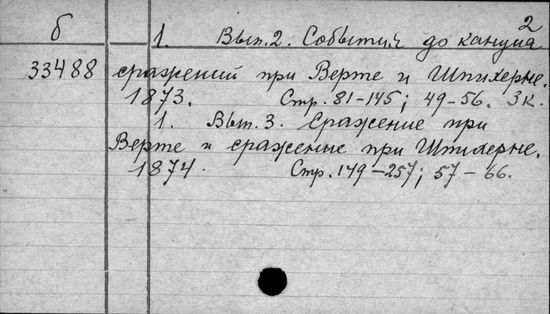 2
б 1. Вып. 2. События до кануна
33488 сражений при Верте и Шпихерне.
1873. Стр. 81-145; 49-56. 3к.
1. Вып. 3. Сражение при
Верте и сражение при Шпихерне.
1874. Стр. 149-257; 57-66.